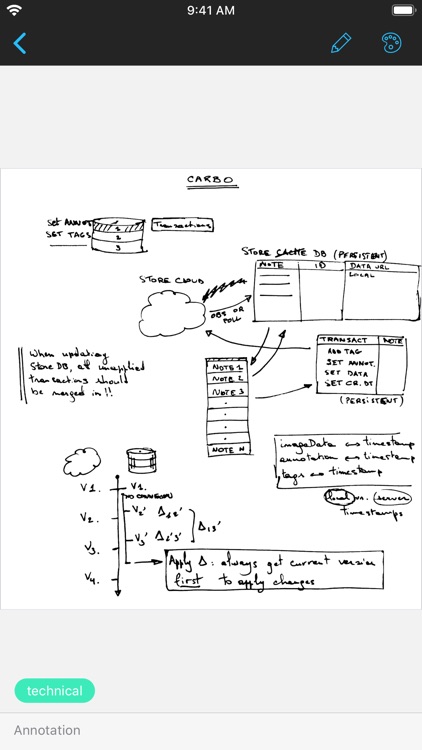 9:41 AM
CARBO
Set ANNOT.
SET TAGS
1
2
3
Transactions
STORE CACHE DB (PERSISTENT)
NOTE ID DATA URL
LOCAL
STORE CLOUD
OBS OR
POLL
TRANSACT NOTE
ADD TAG
SET ANNOT.
SET DATA
SET CR. DT
(PERSISTENT)
When updating
Store DB, all unapplied
transactions should
be merged in!!
NOTE 1
NOTE 2
NOTE 3
NOTE N
imageData ↔ timestamp
annotation ↔ timestamp
tags ↔ timestamp
local vs. server
timestamps
V1. V1.
NO CONNECTION
V2. V2' Δ12'
Δ13'
V3. V3' Δ2'3'
V4.
Apply Δ: always get current version
first to apply changes
technical
Annotation